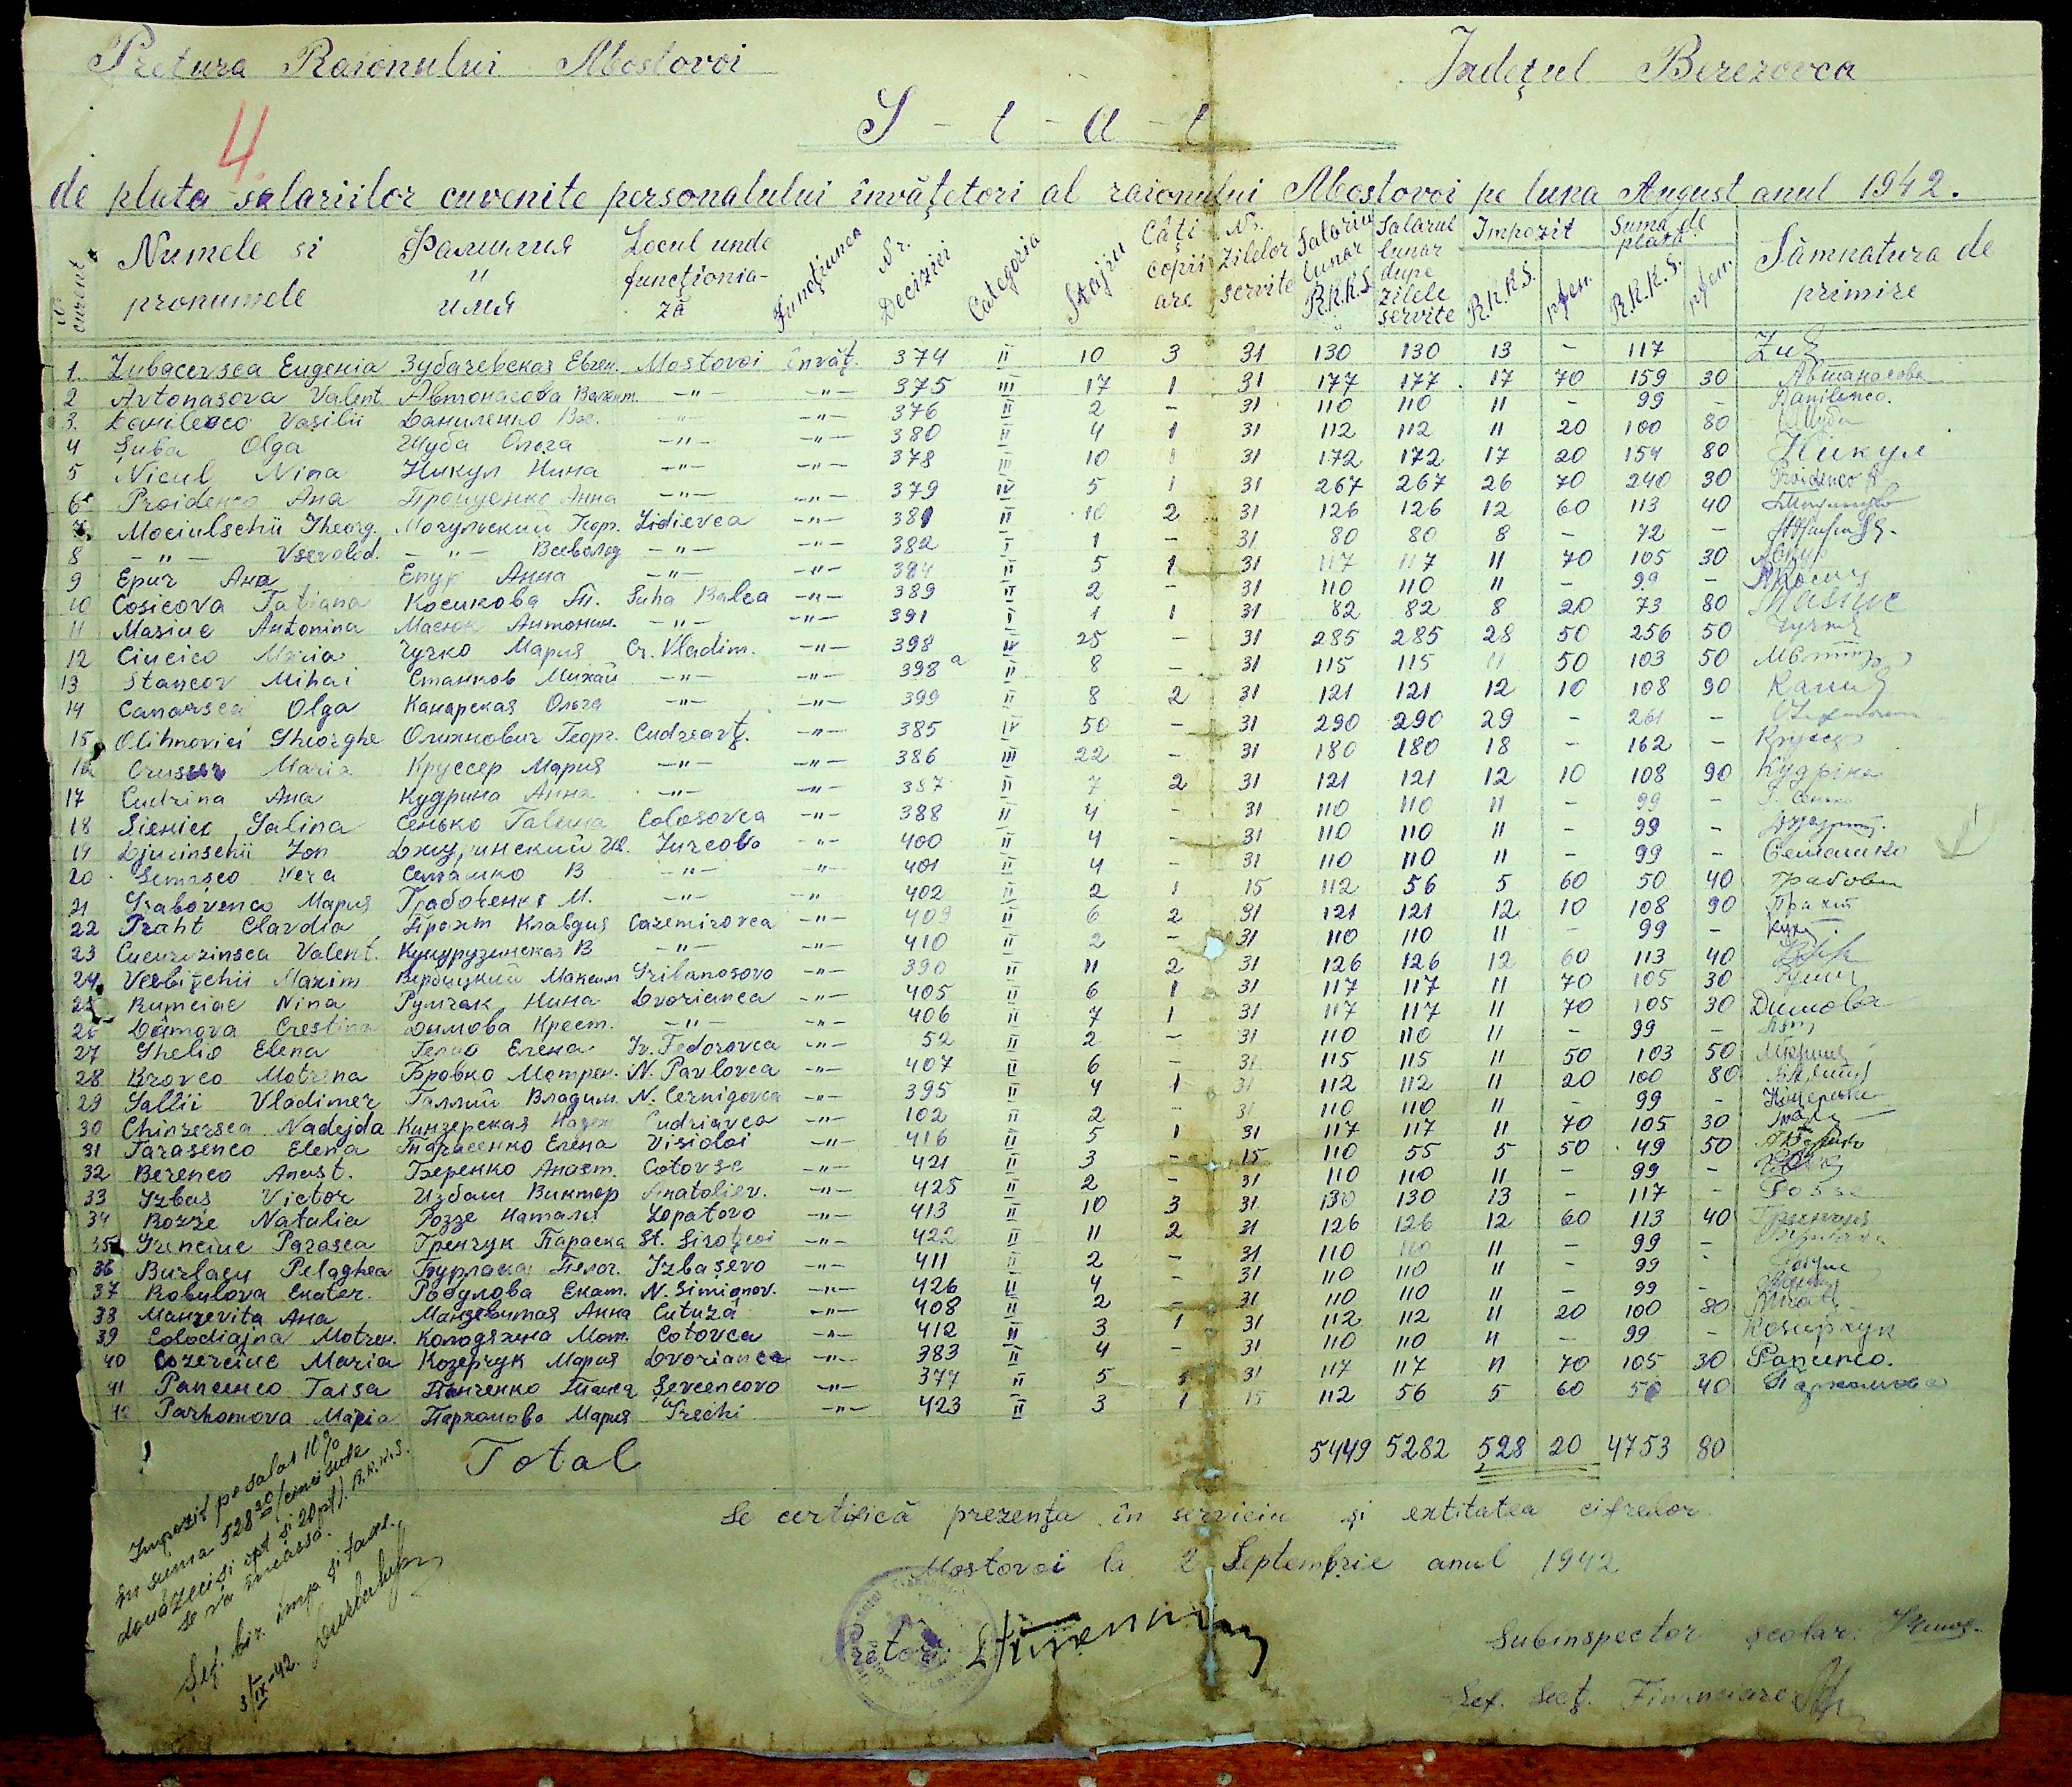 Pretura Raionului Mostovoi
Judeţul Berezovca
4
S - t - a - t
de plata salariilor cuvenite personalului învăţetori al raionului Mostovoi pe luna August anul 1942.
curent Numele si pronumele Фамилия и имя Locul unde funcţioniază Funcţiunea Nr. Deciziei Categoria Stajiu Câţi copii are Nr. Zilelor servite Salariu lunar R.K.K.S. Salarul lunar dupe zilele servite Impozit R.K.K.S. pfen. Suma de plată R.K.K.S. pfen. Sâmnatura de primire
1. Zubacersca Eugenia Зубачевская Евген. Mostovoi învăţ. 374 II 10 3 31 130 130 13 - 117 Зуб
2 Avtonasova Valent. Автонасова Валент. -"- -"- 375 III 17 1 31 177 177 17 70 159 30
3. Danilenco Vasilii Даниленко Вас. -"- -"- 376 II 2 - 31 110 110 11 - 99 - Danilenco.
4 Şuba Olga Шуба Ольга -"- -"- 380 II 4 1 31 112 112 11 20 100 80 Шуба
5 Nicul Nina Никул Нина -"- -"- 378 III 10 1 31 172 172 17 20 154 80 Никул
6 Proidenco Ana Пройденко Анна -"- -"- 379 IV 5 1 31 267 267 26 70 240 30 Proidenco A
7. Mociulschii Gheorg. Мочульский Георг. Lidievca -"- 381 II 10 2 31 126 126 12 60 113 40
8 -"- Vsevolod. -"- Всеволод -"- -"- 382 I 1 - 31 80 80 8 - 72 -
9 Epur Ana Епур Анна -"- -"- 384 II 5 1 31 117 117 11 70 105 30 Епур
10 Cosicova Tatiana Косикова Т. Suha Balca -"- 389 II 2 - 31 110 110 11 - 99 -
11 Masiuc Antonina Масюк Антонин. -"- -"- 391 I 1 1 31 82 82 8 20 73 80 Masiuc
12 Ciucico Maria Чучко Мария Cr. Vladim. -"- 398 IV 25 - 31 285 285 28 50 256 50
13 Stancov Mihai Станков Михай -"- -"- 398 a II 8 - 31 115 115 11 50 103 50
14 Canarsca Olga Канарская Ольга -"- -"- 399 II 8 2 31 121 121 12 10 108 90
15 Olihnovici Gheorghe Олихнович Георг. Cudreavţ. -"- 385 IV 50 - 31 290 290 29 - 261 -
16 Crusser Maria Круссер Мария -"- -"- 386 III 22 - 31 180 180 18 - 162 -
17 Cudrina Ana Кудрина Анна -"- -"- 387 II 7 2 31 121 121 12 10 108 90
18 Sienico Galina Сенько Галина Colosovca -"- 388 II 4 - 31 110 110 11 - 99 -
19 Djurinschii Ion Джуринский Ив. Jurcovo -"- 400 II 4 - 31 110 110 11 - 99 -
20 Semaşco Vera Семашко В -"- -"- 401 II 4 - 31 110 110 11 - 99 - Семашко
21 Grabovenco Мария Грабовенко М. -"- -"- 402 II 2 1 15 112 56 5 60 50 40
22 Praht Clavdia Прахт Клавдия Cazemirovca -"- 409 II 6 2 31 121 121 12 10 108 90 Прахт
23 Cucuruzinsca Valent. Кукурузинская В -"- -"- 410 II 2 - 31 110 110 11 - 99 -
24. Verbiţchii Maxim Вербицкий Максим Gribanosovo -"- 390 II 11 2 31 126 126 12 60 113 40
25 Rumciac Nina Румчак Нина Dvorianca -"- 405 II 6 1 31 117 117 11 70 105 30
26 Dâmova Crestina Дымова Крест. -"- -"- 406 II 7 1 31 117 117 11 70 105 30 Димова
27 Ghelio Elena Гелио Елена Iv. Fedorovca -"- 52 II 2 - 31 110 110 11 - 99 -
28 Brovco Motrina Бровко Мотрен. N. Pavlovca -"- 407 II 6 - 31 115 115 11 50 103 50
29 Gallii Vladimer Галлий Владим. N. Cernigovca -"- 395 II 4 1 31 112 112 11 20 100 80
30 Chinzersca Nadejda Кинзерская Надеж. Cudriavca -"- 102 II 2 - 31 110 110 11 - 99 -
31 Tarasenco Elena Тарасенко Елена Visidoi -"- 416 II 5 1 31 117 117 11 70 105 30
32 Berenco Anast. Беренко Анаст. Cotovsc -"- 421 II 3 - 15 110 55 5 50 49 50
33 Izbaş Victor Избаш Виктор Anatoliev. -"- 425 II 2 - 31 110 110 11 - 99 -
34 Rozze Natalia Роззе Наталия Lopatovo -"- 413 II 10 3 31 130 130 13 - 117 -
35 Grenciuc Parasca Гренчук Параска St. Siroţcoi -"- 422 II 11 2 31 126 126 12 60 113 40
36 Burlacu Pelaghea Бурлака Пелог. Izbaşevo -"- 411 II 2 - 31 110 110 11 - 99 -
37 Robulova Ekater. Робулова Екат. N. Simionov. -"- 426 II 4 - 31 110 110 11 - 99
38 Manzevita Ana Манзевитая Анна Cutuză -"- 408 II 2 - 31 110 110 11 - 99 -
39 Colodiajna Motren. Колодяжна Мот. Cotovca -"- 412 II 3 1 31 112 112 11 20 100 80
40 Cozerciuc Maria Козерчук Мария Dvorianca -"- 383 II 4 - 31 110 110 11 - 99 -
41 Pancenco Taisa Панченко Таиса Şevcencovo -"- 377 II 5 31 117 117 11 70 105 30 Pancenco.
42 Parhomova Maria Пархомова Мария Trechi -"- 423 II 3 1 15 112 56 5 60 50 40
Total 5449 5282 528 20 4753 80
Impozit pe salar 10%
în suma 528 20 / cincisute
douăzeci şi opt şi 20 pf). R.K.K.S.
se va încassa.
Şef. bir. imp. şi taxe.
3/IX-42.
Se certifică prezenţa în serviciu şi extitatea cifrelor.
Mostovoi la 2 Septembrie anul 1942
Pretor
Subinspector şcolar:
Şef. Secţ. Financiare